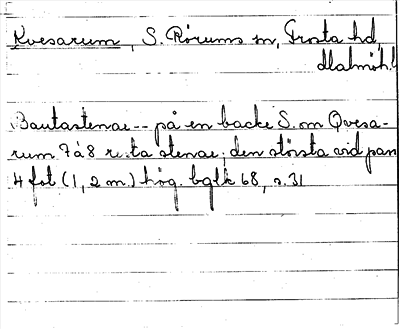 Kvesarum, S. Rörums sn, Frosta hd,
Malmöh.l
Bautastenar -- på en backe S. om Qvesa-
rum 7 à 8 resta stenar, den största vid pass
4 fot (1,2 m) hög. bglk 68, s. 31